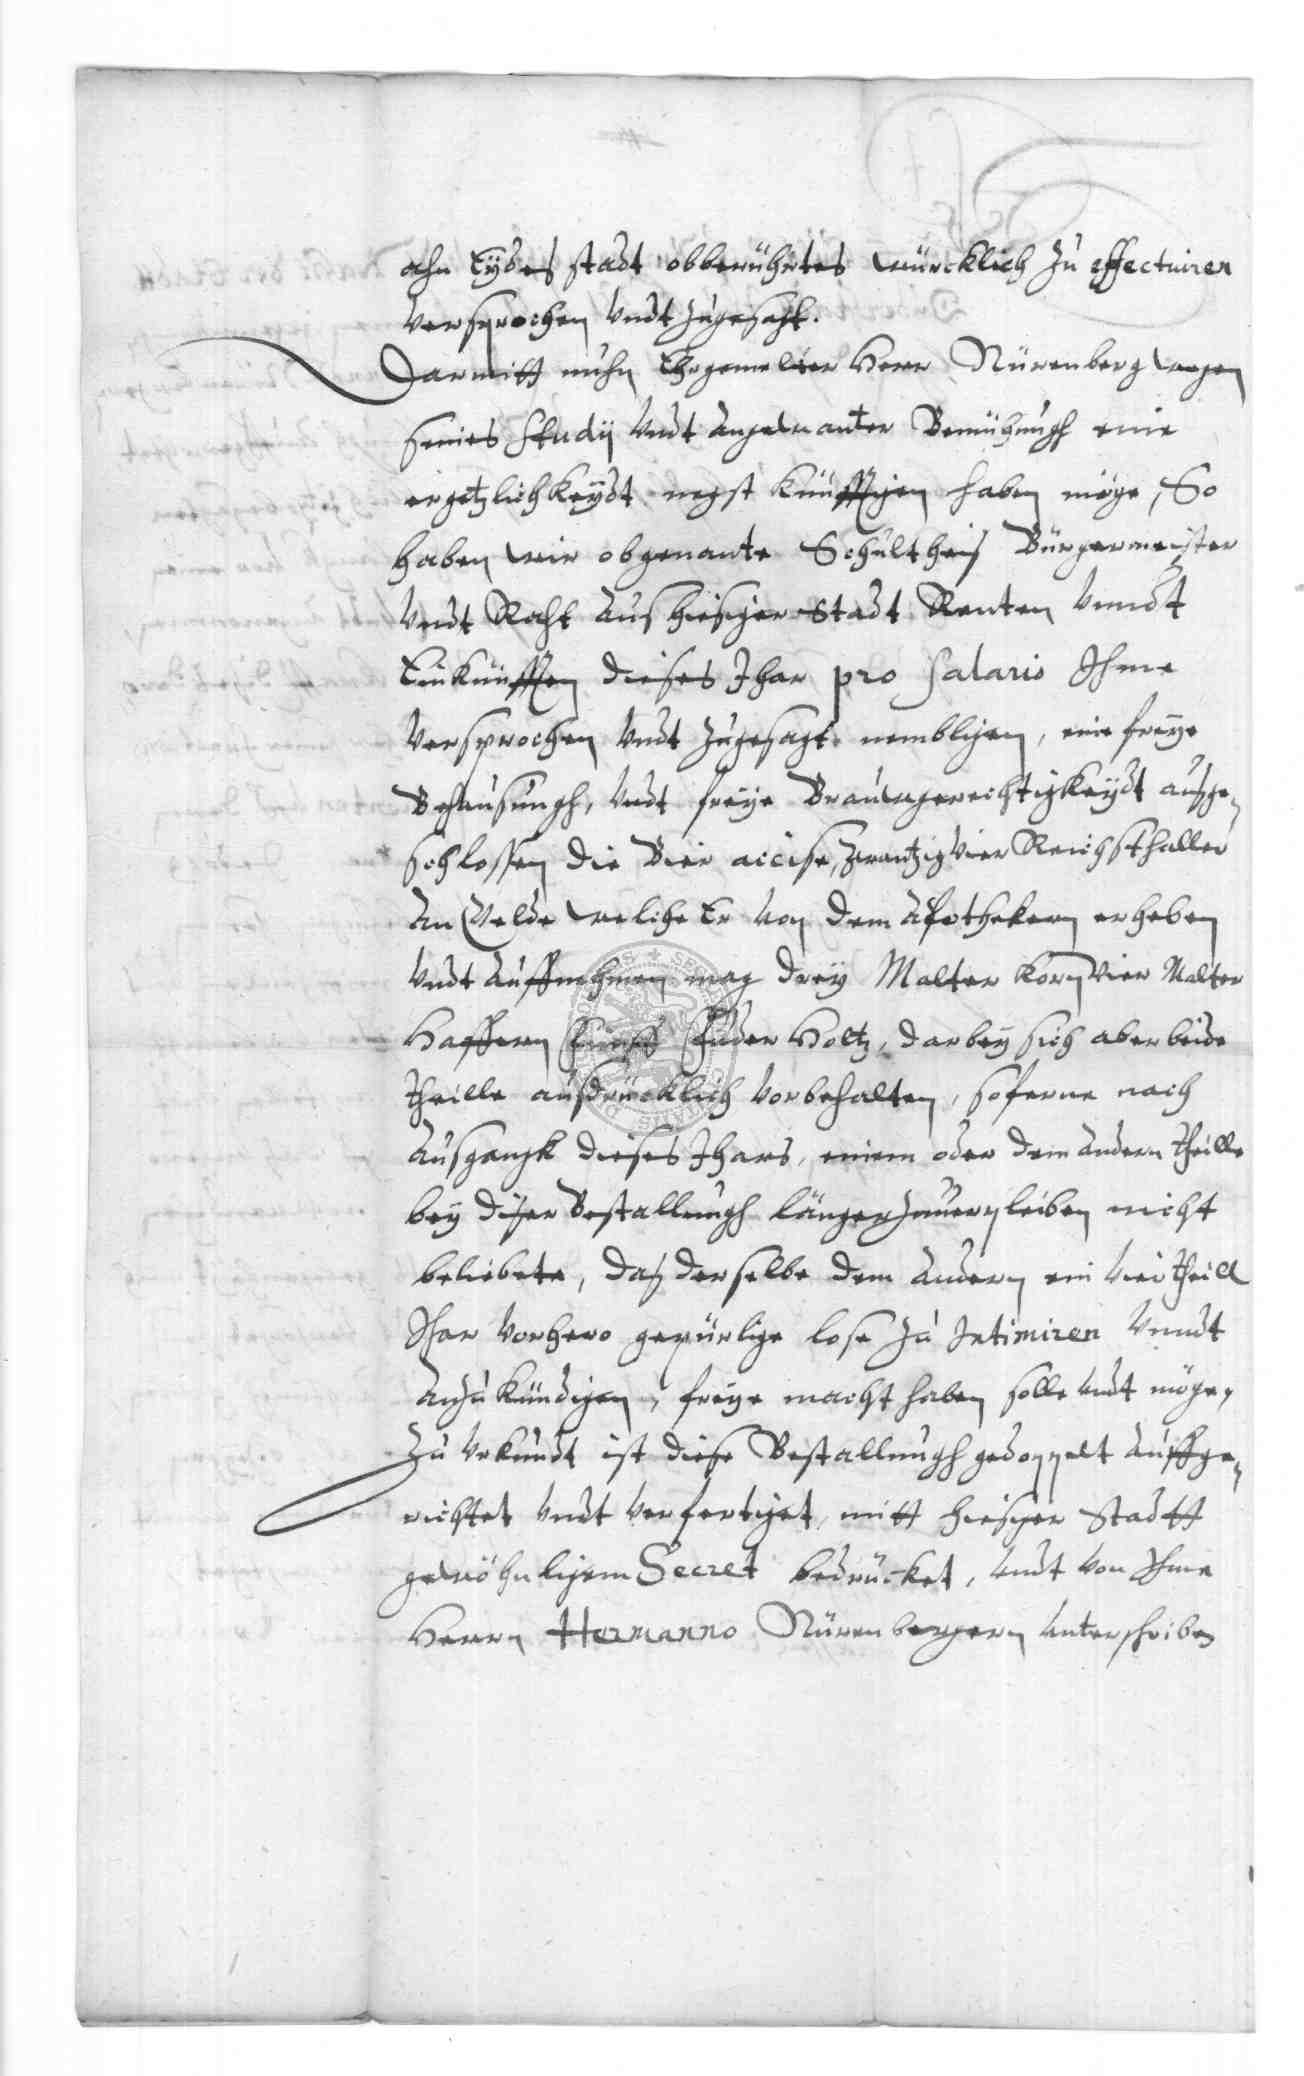 ahn Eydes stadt obberührtes würcklich zu effectuiren
versprochen undt zugesagt.
Darmitt nuhn Ehrgemelter Herr Nürenberg wegen
seines Studij undt angewanter Bemühungh eine
ergetzlichkeydt negst künfftigen haben möge, So
haben wir obgenante Schultheis Bürgermeister
undt Raht aus hiesiger Stadt Renten unndt
Einkünfften dieses Jhar pro Salario Ihme
versprochen undt zugesagt. nembligen, eine freye
Behausungh, undt freye Brauwgerechtigkeydt ausge„
schlossen die Bier accise, zwantzig vier Reichsthaller
an Gelde welche Er von dem Apothekern erheben
undt auffnehmen mag drey Malter korn vier Malter
Haffern Fünff Fuder Holtz, darbey sich aber beide
theille ausdrücklich vorbehalten, soferne nach
ausgangk dieses Jhars, einem oder dem andern theille
bey diser Bestallungh länger zuverpleiben nicht
beliebete, das derselbe dem andern ein viertheill
Jhar vorhero gepürlige lose zu Intimiren unndt
anzukündigen, freye macht haben solle undt möge,
Zu Urkundt ist diese Bestallungh gedoppelt auffge„
richtet undt verfertiget, mitt hiesiger Stadtt
gewöhnligem Secret bedrücket, undt von Ihme
Herrn Hermanno Nürenbergern unterschriben